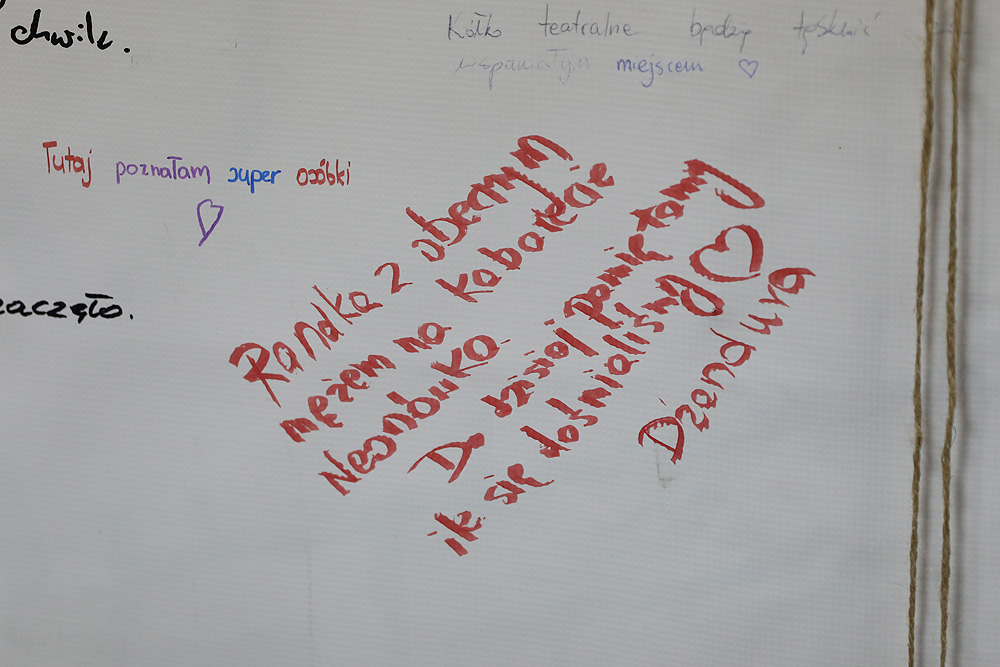 chwile.
Kółko teatralne będzie tęsknić za
wspaniałym miejscem ♡
Tutaj poznałam super osóbki
zaczęło.
Randka z obecnym
mężem na kabarecie
Neonówka.
Do dzisiaj pamiętamy
ik się dośmialiśmy ♡
Dżana